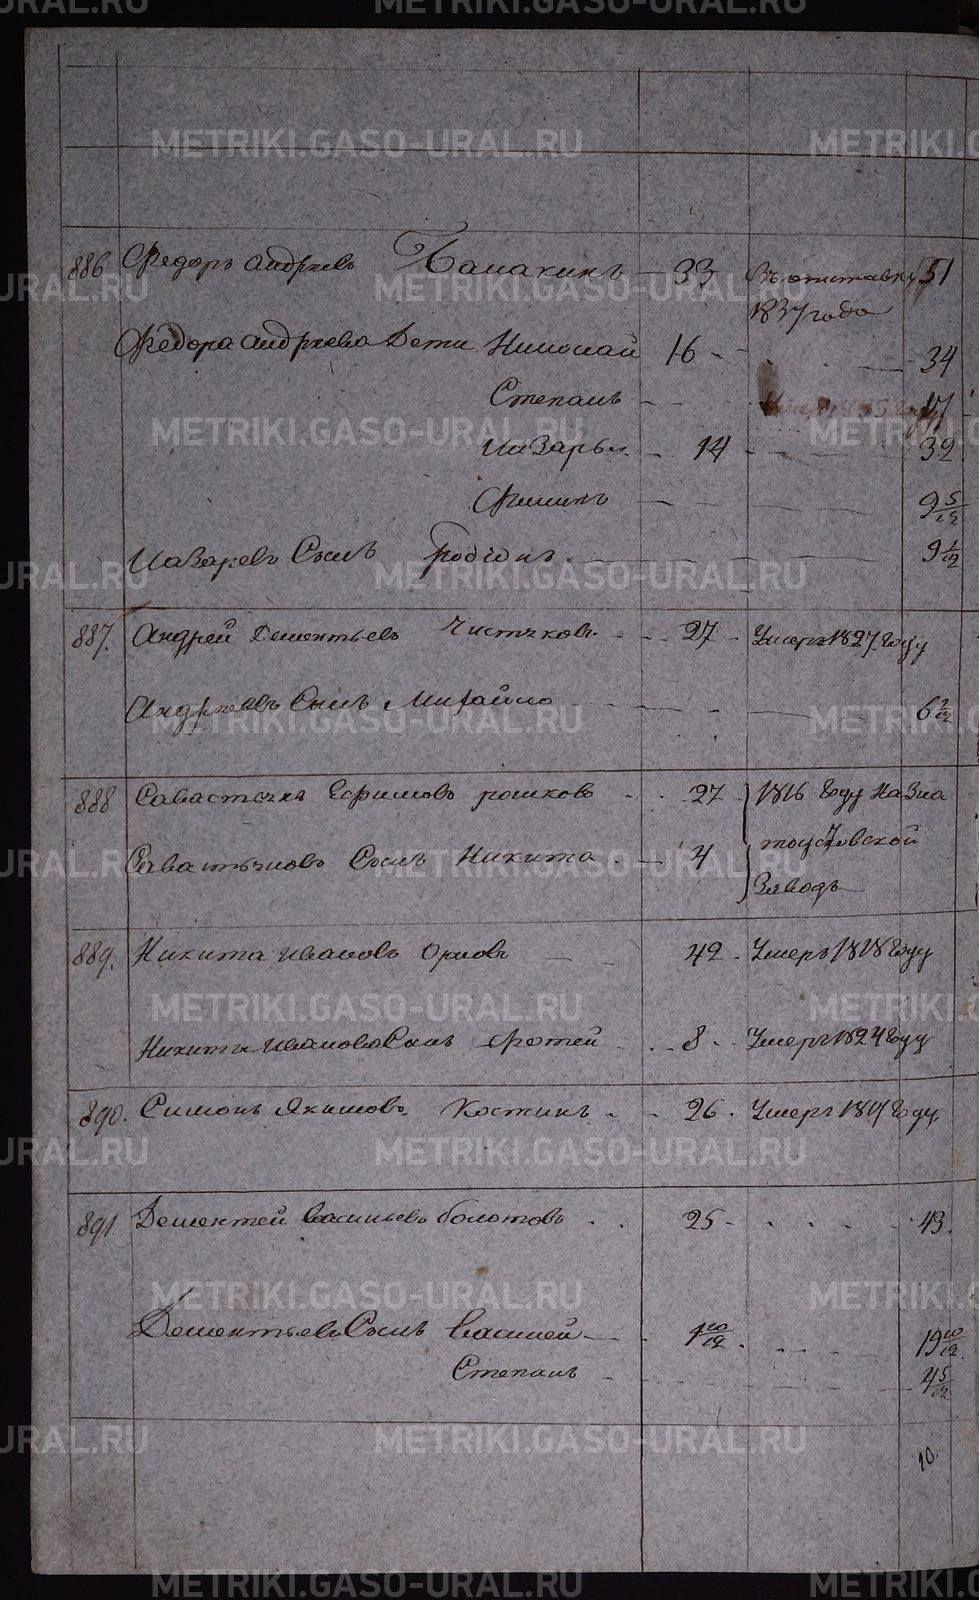 METRIKI.GASO-URAL.RU
886 Федоръ Андреевъ Балакинъ 33 Въ отставку 51
1837 года
Федора Андреева Дети Николай 16 34
Степанъ 17
Назаръ 14 32
Филипъ 9 5/12
Назаревъ Сынъ Родионъ 9 1/12
887. Андрей Дементьевъ Чистяковъ 27 Умеръ 1827 Году
Андреевъ Сынъ Михайло 6 2/12
888 Савастьянъ Ефимовъ 27 1816 Году На Зла
Савастьяновъ Сынъ Никита 4 тоустовской
Заводъ
889. Никита Ивановъ Орловъ 42 Умеръ 1818 Году
Никиты Иванова Сынъ Фотей 8 Умеръ 1824 Году
890. Симонъ Якимовъ Костинъ 26 Умеръ Году
891. Дементей Васильевъ Болотовъ 25 43
Дементьевъ Сынъ Василей 1 10/12 19 10/12
Степанъ 4 5/12
10.